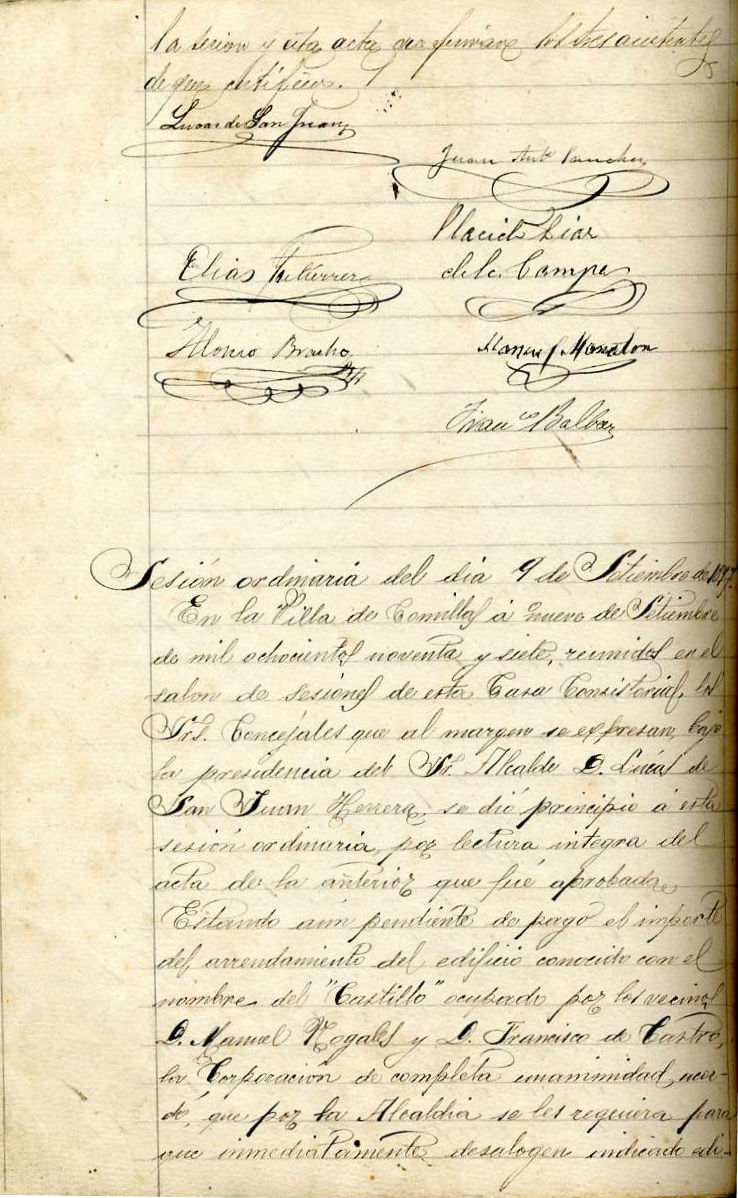 la sesion y esta acta que firman los Sres asistentes
de que certifico.
Lucas de San Juan
Juan Antº Sanchez
Placido Diaz
de la Campa
Elias Gutierrez
Alonso Bracho
Manuel
Franco Balbas
Sesión ordinaria del dia 9 de Setiembre de 1897.
En la Villa de Comillas á nueve de Setiembre
de mil ochocientos noventa y siete, reunidos en el
salon de sesiones de esta Casa Consistorial, los
Srs. Concejales que al margen se expresan, bajo
la presidencia del Sr. Alcalde D. Lucas de
San Juan Herrera, se dió principio á esta
sesión ordinaria, por lectura integra del
acta de la anterior que fué aprobada
Estando aún pendiente de pago el importe
del arrendamiento del edificio conocido con el
nombre del "Castillo" ocupado por los vecinos
D. Manuel Nogales y D. Francisco de Castro,
la Corporación de completa unanimidad, acor-
dó, que por la Alcaldia se les requiera para
que inmediatamente desalogen indicado edi-